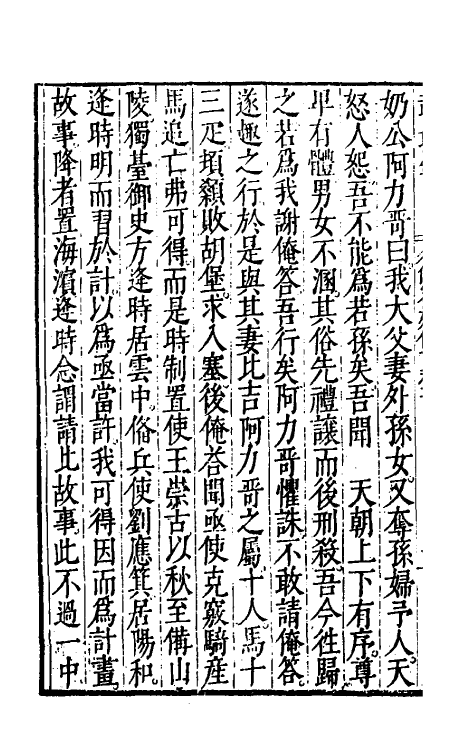 奶公阿力哥曰我大父妻外孫女又奪孫婦予人天
怒人怨吾不能為若孫矣吾聞　天朝上下有序尊
卑有體男女不溷其俗先禮讓而後刑殺吾今徃歸
之若為我謝俺答吾行矣阿力哥懼誅不敢請俺答
遂趣之行於是與其妻比吉阿力哥之屬十人馬十
三疋損顙敗胡堡求入塞後俺答聞亟使克竅騎産
馬追亡弗可得而是時制置使王崇古以秋至備山
陵獨臺御史方逢時居雲中俗兵使劉應箕居陽和
逢時明而習於計以為亟當許我可得因而為計畫
故事降者置海濵逢時念謂請比故事此不過一中